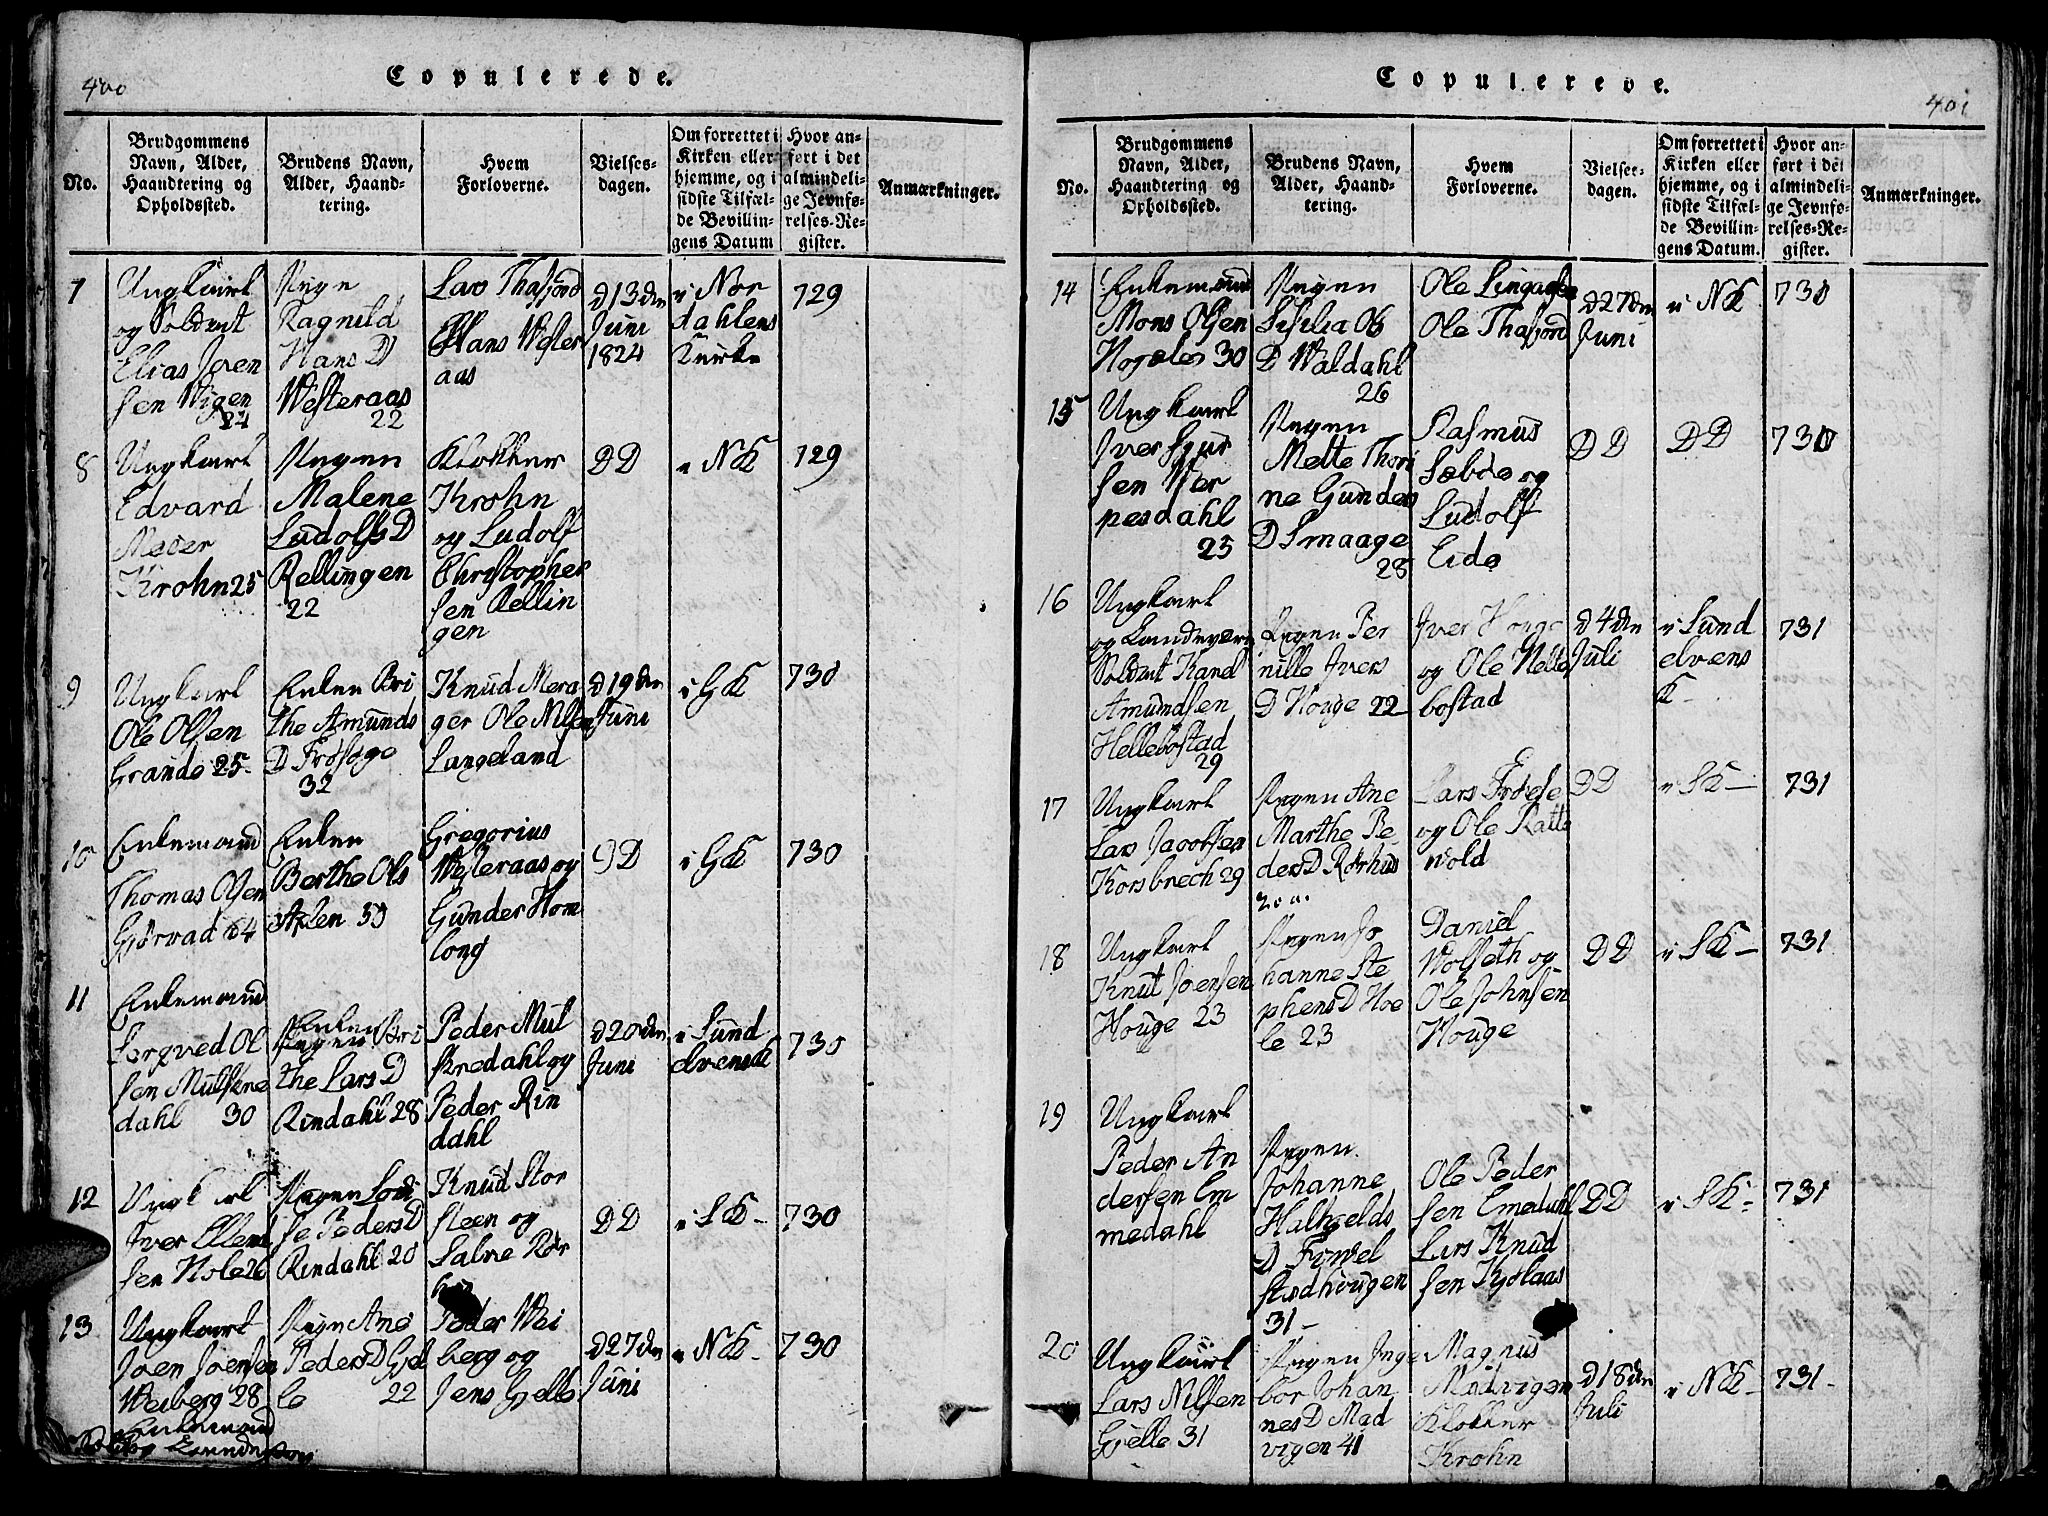 400
Copulerede.
No.
Brudgommens
Navn, Alder,
Haandtering og
Opholdssted.
Brudens Navn,
Alder, Haand-
tering.
Hvem
Forloverne.
Vielses-
dagen.
Om forrettet i
Kirken eller
hjemme, og i
sidste Tilfæl-
de Bevillin-
gens Datum
Hvor an-
ført i det
almindeli-
ge Jevnfø-
relses-Re-
gister.
Anmærkninger.
7
Ungkarl
og Soldat
Elias Joen
sen Wigen
24
Pigen
Ragnild
Hans D
Westeraas
22
Lars Thafiord
Hans Wester
aas
D 13den
Juni
1824
i Nor
dahlens
Kirke
729
8
Ungkarl
Edvard
Meder
Krohn 25
Pigen
Malene
Ludolfs D
Rellingen
22
Klokker
Krohn
og Ludolf
Christopher
sen Rellin
gen
D D
i NK
729
9
Ungkarl
Ole Olsen
Grande 25
Enken Bri
the Amunds
D Frøsøge
32
Knud Mera
ger Ole Nilsen
Langeland
D 19den
Juni
i GK
730
10
Enkemand
Thomas Olsen
Gjørvad 64
Enken
Berthe Ols
50
Gregorius
Westeraas og
Gunder Hom
long
D D
i GK
730
11
Enkemand
Ol
sen Mulskre
dahl 30
Enken
Pigen Bri
the Lars D
Rindahl 28
Peder Mul
skredahl og
Peder Rin
dahl
D 20den
Juni
i Sund
elvens K
730
12
Ungkarl
Iver Ellend
sen Hole 26
Pigen Lovi
se Peders D
Rindahl 20
Knud Stor
steen og
Salve Rør
hus
D D
i SK-
730
13
Ungkarl
Joen Joensen
Weiberg 28
Pigen Ane
Peders D Gjel
le 22
Peder Wei
berg og
Jens Gjelle
D 27den
Juni
i NK-
730
Enkemand
401
Copulerede.
No.
Brudgommens
Navn, Alder,
Haandtering og
Opholdssted.
Brudens Navn,
Alder, Haand-
tering.
Hvem
Forloverne.
Vielses-
dagen.
Om forrettet i
Kirken eller
hjemme, og i
sidste Tilfæl-
de Bevillin-
gens Datum.
Hvor an-
ført i det
almindeli-
ge Jevnfø-
relses-Re-
gister.
Anmærkninger.
14
Enkemand
Mons Olsen
30
Pigen
Sisilia Ols
D Waldahl
26
Ole Lingaas
Ole Thafiord
D 27den
Juni
i NK
730
15
Ungkarl
Iver Sjur
sen Wer
pesdahl
25
Pigen
Mette Thori
ne Gunders
D Smaage
28
Rasmus
Sæbøe og
Ludolf
Eide
D D
D D
730
16
Ungkarl
og Landeværn
Soldat Karel
Amundsen
Hellebostad
29
Pigen Per
nille Ivers
D Houge 22
Iver Houge
og Ole Helle
bostad
D 4den
Juli
i Sund
elvens
K-
731
17
Ungkarl
Lars Jacobsen
Korsbrech 29
Pigen Ane
Marthe Pe
ders D Rørhus
20 a.
Lars Frøise
og Ole Ratte
vold
D D
i SK-
731
18
Ungkarl
Knut Joensen
Houge 23
Pigen Jo
hanne Ste
phens D Hoe
le 23
Daniel
Wolseth og
Ole Johnsen
Houge
D D
i SK-
731
19
Ungkarl
Peder An
dersen Em
medahl
Pigen
Johanne
Halkields
D Frivel
stadhougen
31-
Ole Peder
sen Emedahl
Lars Knud
sen Kjølaas
D D
i SK-
731
20
Ungkarl
Lars Nilsen
Gjelle 31
Pigen Inge
bor Johan
nes D Mad
vigen 41
Magnus
Madvigen
Klokker
Krohn
D 18den
Juli
i NK-
731-